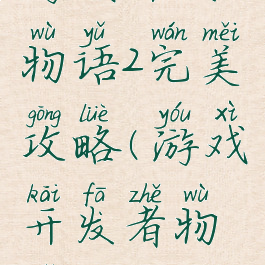 wù yǔ wán měi
物语2完美
gōng lüè yóu xì
攻略(游戏
kāi fā zhě wù
开发者物